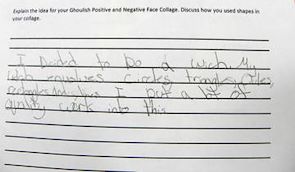 Explain the idea for your Ghoulish Positive and Negative Face Collage. Discuss how you used shapes in
your collage.
I to Do a wich. My
wich circles, triangles,
rectangles I put a lot of
quality work into this.